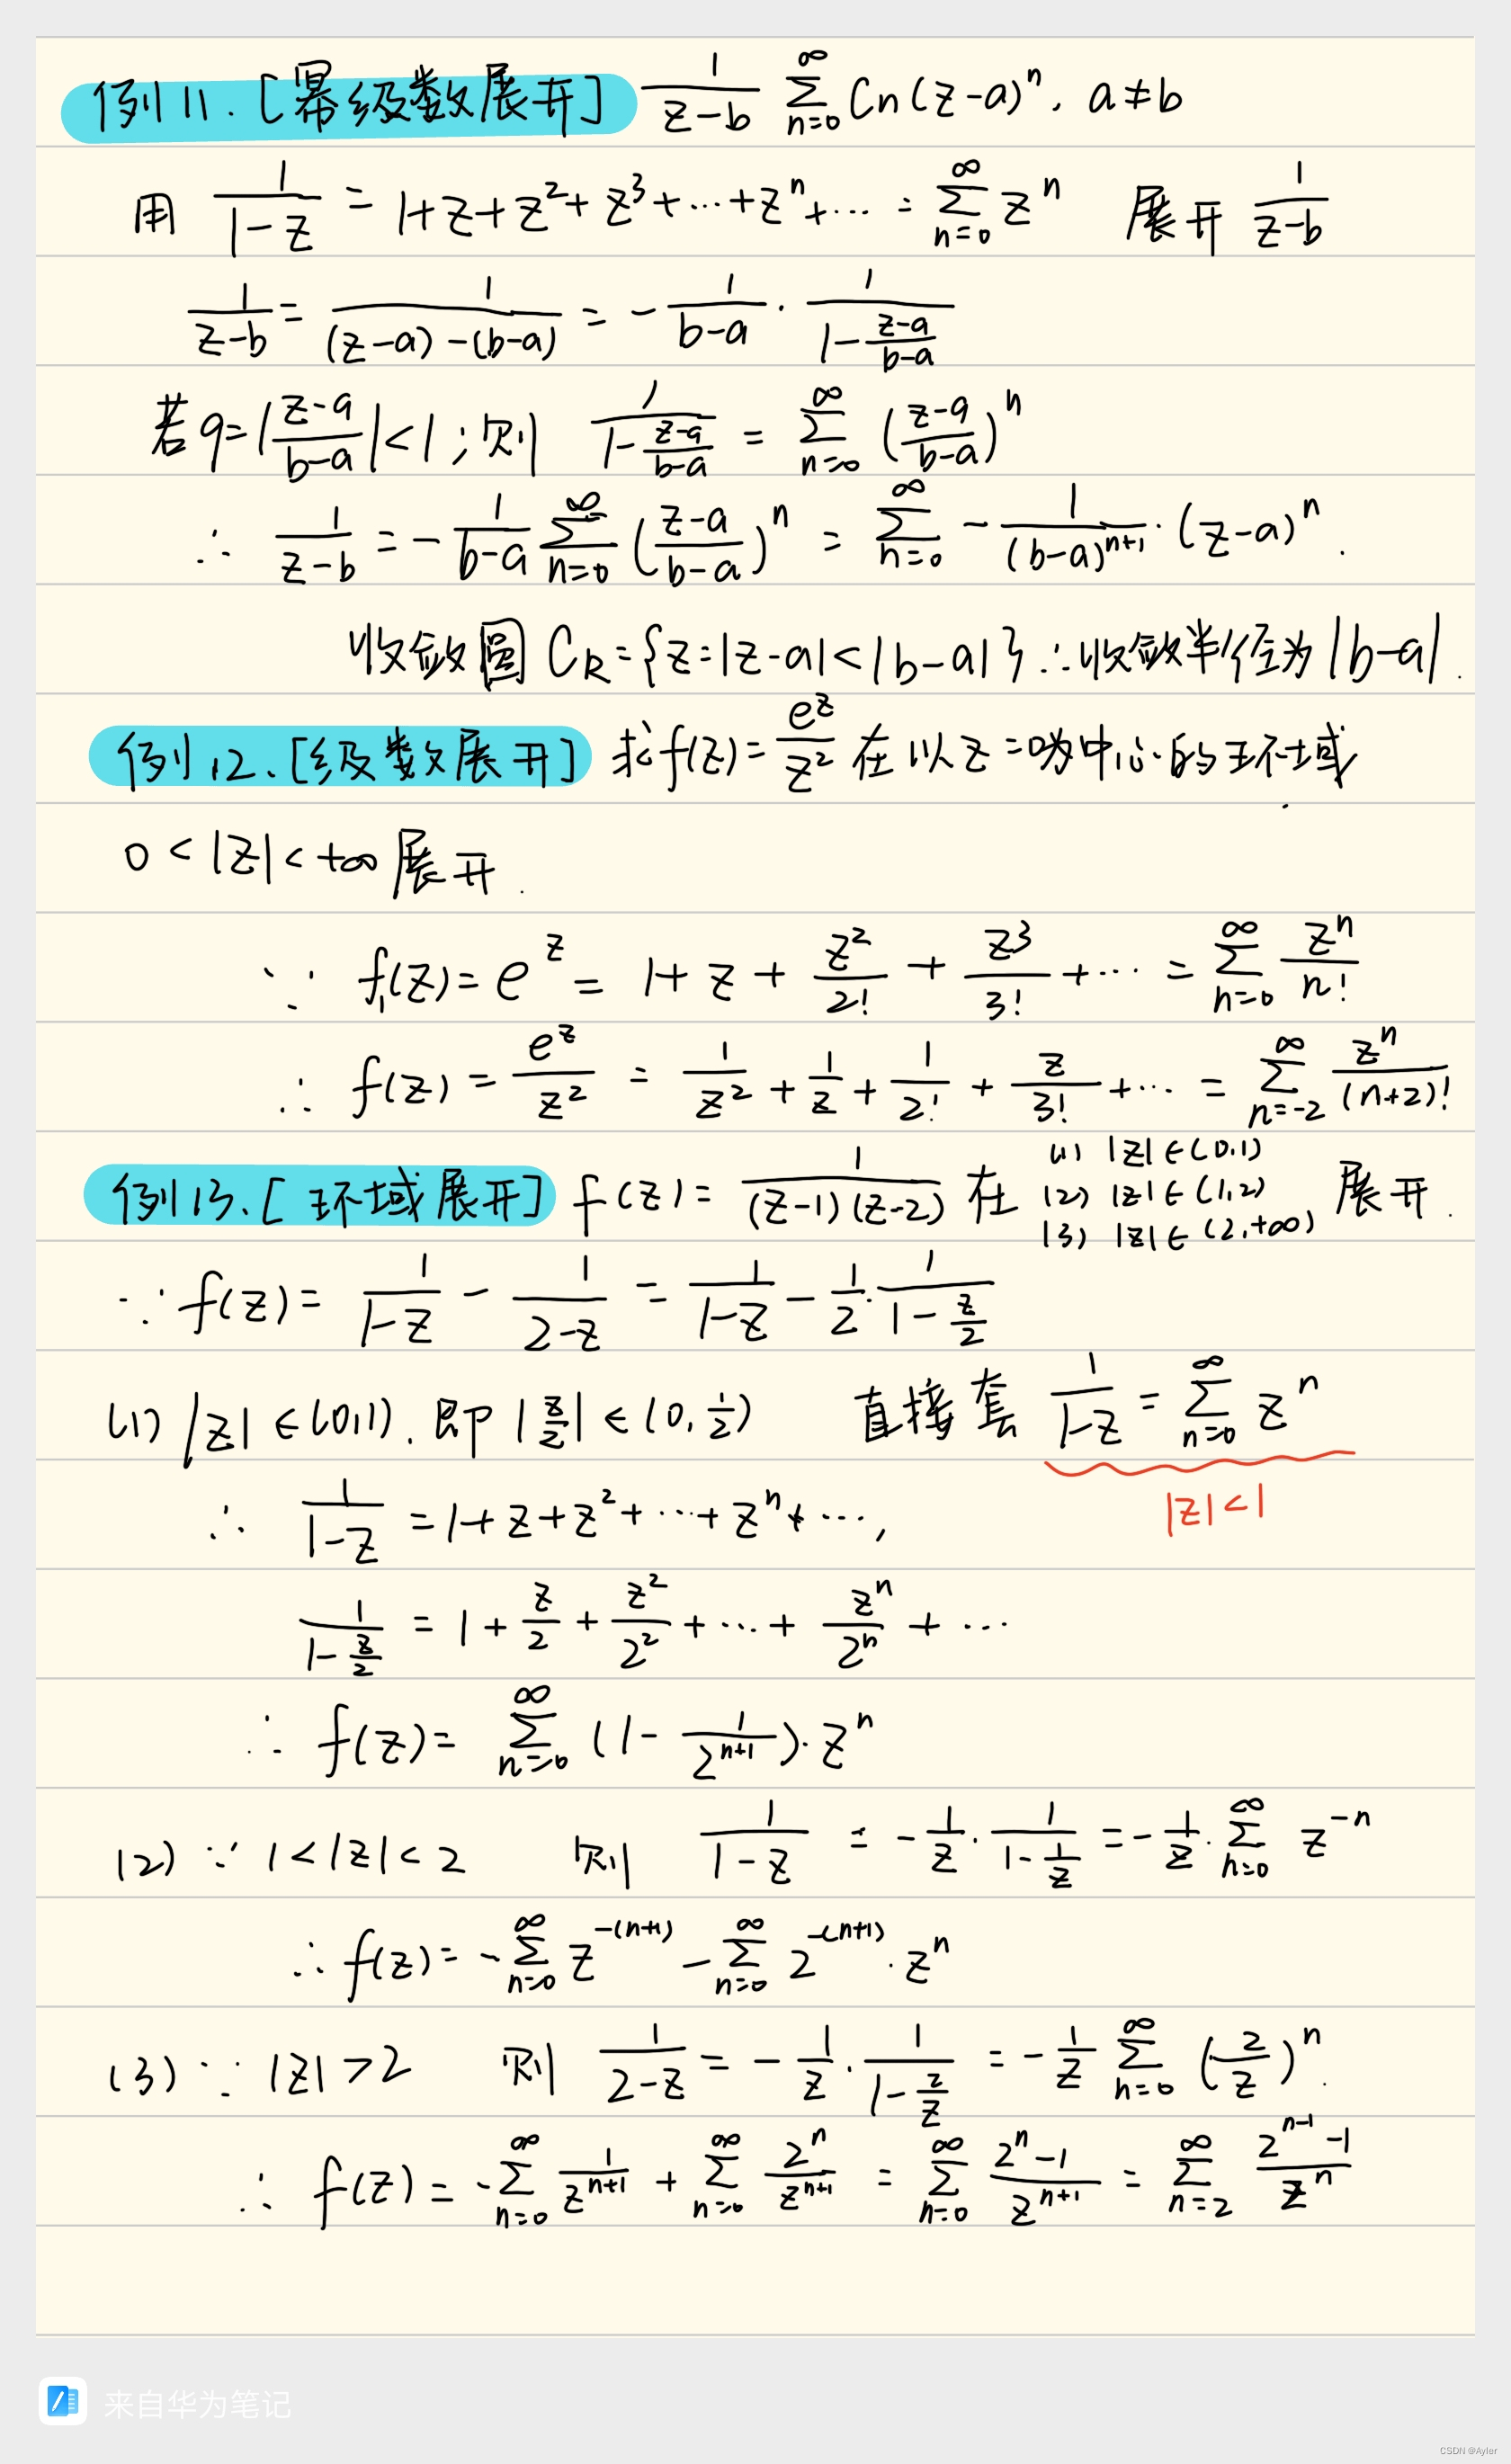 例11.[幂级数展开] \frac{1}{z-b} \sum_{n=0}^{∞} Cn(z-a)^n, a≠b
用 \frac{1}{1-z} = 1+z+z^2+z^3+…+z^n+… = \sum_{n=0}^{∞} z^n 展开 \frac{1}{z-b}
\frac{1}{z-b} = \frac{1}{(z-a)-(b-a)} = -\frac{1}{b-a}·\frac{1}{1-\frac{z-a}{b-a}}
若 q=|\frac{z-a}{b-a}|<1;则 \frac{1}{1-\frac{z-a}{b-a}} = \sum_{n=0}^{∞} (\frac{z-a}{b-a})^n
∴ \frac{1}{z-b} = -\frac{1}{b-a} \sum_{n=0}^{∞} (\frac{z-a}{b-a})^n = \sum_{n=0}^{∞} -\frac{1}{(b-a)^{n+1}}·(z-a)^n.
收敛圆 C_R={z=|z-a|<|b-a|} ∴收敛半径为|b-a|.
例12.[级数展开] 求f(z)=\frac{e^z}{z^2} 在以z=0为中心的环域
0<|z|<+∞展开.
∵ f_1(z)=e^z = 1+z+\frac{z^2}{2!}+\frac{z^3}{3!}+… = \sum_{n=0}^{∞} \frac{z^n}{n!}
∴ f(z) = \frac{e^z}{z^2} = \frac{1}{z^2}+\frac{1}{z}+\frac{1}{2!}+\frac{z}{3!}+… = \sum_{n=-2}^{∞} \frac{z^n}{(n+2)!}
例13.[环域展开] f(z)=\frac{1}{(z-1)(z-2)} 在 (1) |z|∈(0,1) (2) |z|∈(1,2) (3) |z|∈(2,+∞) 展开.
∵ f(z)= \frac{1}{1-z} - \frac{1}{2-z} = \frac{1}{1-z} - \frac{1}{2}·\frac{1}{1-\frac{z}{2}}
(1) |z|∈(0,1).即|\frac{z}{2}|∈(0,\frac{1}{2}) 直接套 \frac{1}{1-z} = \sum_{n=0}^{∞} z^n
|z|<1
∴ \frac{1}{1-z} = 1+z+z^2+…+z^n+…,
\frac{1}{1-\frac{z}{2}} = 1+\frac{z}{2}+\frac{z^2}{2^2}+…+\frac{z^n}{2^n}+…
∴ f(z)= \sum_{n=0}^{∞} (1-\frac{1}{2^{n+1}})·z^n
(2) ∵ 1<|z|<2 则 \frac{1}{1-z} = -\frac{1}{z}·\frac{1}{1-\frac{1}{z}} = -\frac{1}{z}·\sum_{n=0}^{∞} z^{-n}
∴ f(z)= -\sum_{n=0}^{∞} z^{-(n+1)} - \sum_{n=0}^{∞} 2^{-(n+1)}·z^n
(3) ∵ |z|>2 则 \frac{1}{2-z} = -\frac{1}{z}·\frac{1}{1-\frac{2}{z}} = -\frac{1}{z} \sum_{n=0}^{∞} (\frac{2}{z})^n.
∴ f(z) = -\sum_{n=0}^{∞} \frac{1}{z^{n+1}} + \sum_{n=0}^{∞} \frac{2^n}{z^{n+1}} = \sum_{n=0}^{∞} \frac{2^n-1}{z^{n+1}} = \sum_{n=2}^{∞} \frac{2^{n-1}-1}{z^n}
来自华为笔记
CSDN @Ayler